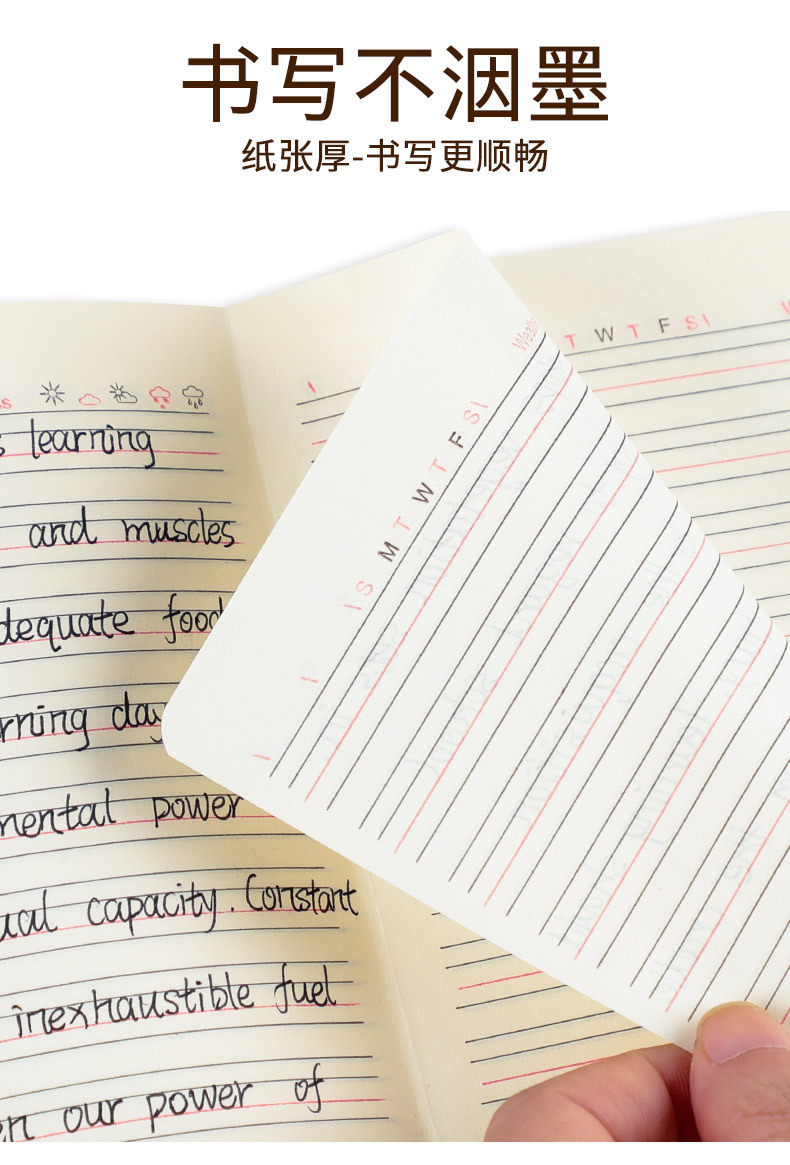 书写不洇墨
纸张厚-书写更顺畅
learning
and muscles
dequate food
rning day
mental power
ual capacity. Constant
inexhaustible fuel
en our power of
I S M T W T F S I
T W T F S I